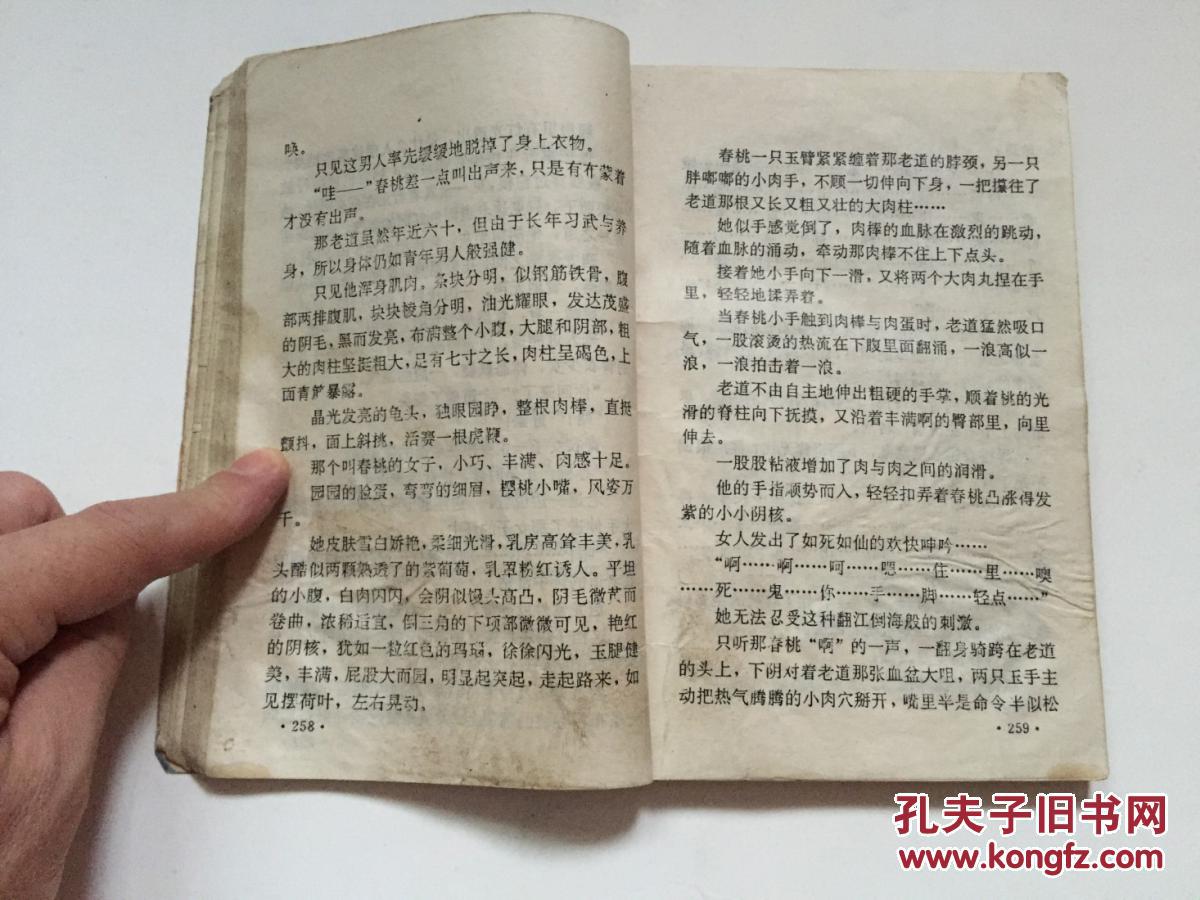 唤。
只见这男人率先缓缓地脱掉了身上衣物。
“哇——”春桃差一点叫出声来，只是有布蒙着
才没有出声。
那老道虽然年近六十，但由于长年习武与养
身，所以身体仍如青年男人般强健。
只见他浑身肌肉。条块分明，似钢筋铁骨，腹
部两排腹肌，块块棱角分明，油光耀眼，发达茂盛
的阴毛，黑而发亮，布满整个小腹，大腿和阴部，粗
大的肉柱坚挺粗大，足有七寸之长，肉柱呈碣色，上
面青筋暴露。
晶光发亮的龟头，独眼园睁，整根肉棒，直挺
颤抖，面上斜挑，活赛一根虎鞭。
那个叫春桃的女子，小巧、丰满、肉感十足。
园园的脸蛋，弯弯的细眉，樱桃小嘴，风姿万
千。
她皮肤雪白娇艳，柔细光滑，乳房高耸丰美，乳
头酷似两颗熟透了的紫葡萄，乳罩粉红诱人。平坦
的小腹，白肉闪闪，会阴似馒头高凸，阴毛微黄而
卷曲，浓稀适宜，倒三角的下项部微微可见，艳红
的阴核，犹如一粒红色的玛瑙，徐徐闪光，玉腿健
美，丰满，屁股大而园，明显起突起，走起路来，如
见摆荷叶，左右晃动。
·258·
春桃一只玉臂紧紧缠着那老道的脖颈，另一只
胖嘟嘟的小肉手，不顾一切伸向下身，一把攥往了
老道那根又长又粗又壮的大肉柱……
她似手感觉倒了，肉棒的血脉在激烈的跳动，
随着血脉的涌动，牵动那肉棒不住上下点头。
接着她小手向下一滑，又将两个大肉丸捏在手
里，轻轻地揉弄着。
当春桃小手触到肉棒与肉蛋时，老道猛然吸口
气，一股滚烫的热流在下腹里面翻涌，一浪高似一
浪，一浪拍击着一浪。
老道不由自主地伸出粗硬的手掌，顺着桃的光
滑的脊柱向下抚摸，又沿着丰满啊的臀部里，向里
伸去。
一股股粘液增加了肉与肉之间的润滑。
他的手指顺势而入，轻轻扣弄着春桃凸涨得发
紫的小小阴核。
女人发出了如死如仙的欢快呻吟……
“啊……啊……呵……嗯……住……里……噢
……死……鬼……你……手……脚……轻点……”
她无法忍受这种翻江倒海般的刺激。
只听那春桃“啊”的一声，一翻身骑跨在老道
的头上，下阴对着老道那张血盆大咀，两只玉手主
动把热气腾腾的小肉穴掰开，嘴里半是命令半似松
·259·
孔夫子旧书网
www.kongfz.com